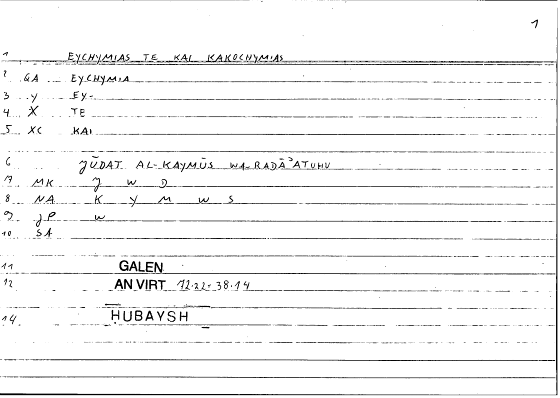 1
1 EYCHYMIAS TE KAI KAKOCHYMIAS
2 GA EYCHYMIA
3 Y EY-
4 X TE
5 XC KAI
6 ǦŪDAT AL-KAYMŪS WA-RADĀʾATUHU
7 MK Ǧ W D
8 NA K Y M W S
9 JP W
10 SA
11 GALEN
12 AN VIRT 12.22-38.14
14 ḤUBAYSH